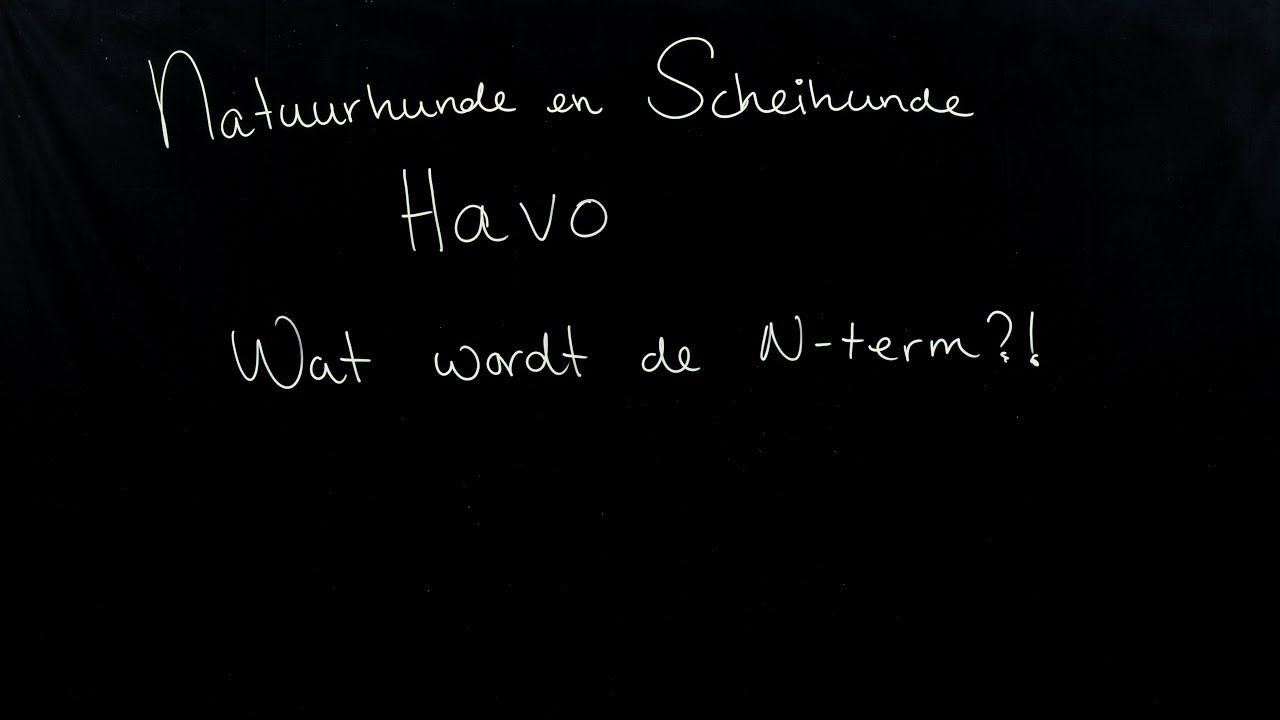 Natuurkunde en Scheikunde
Havo
Wat wordt de N-term?!